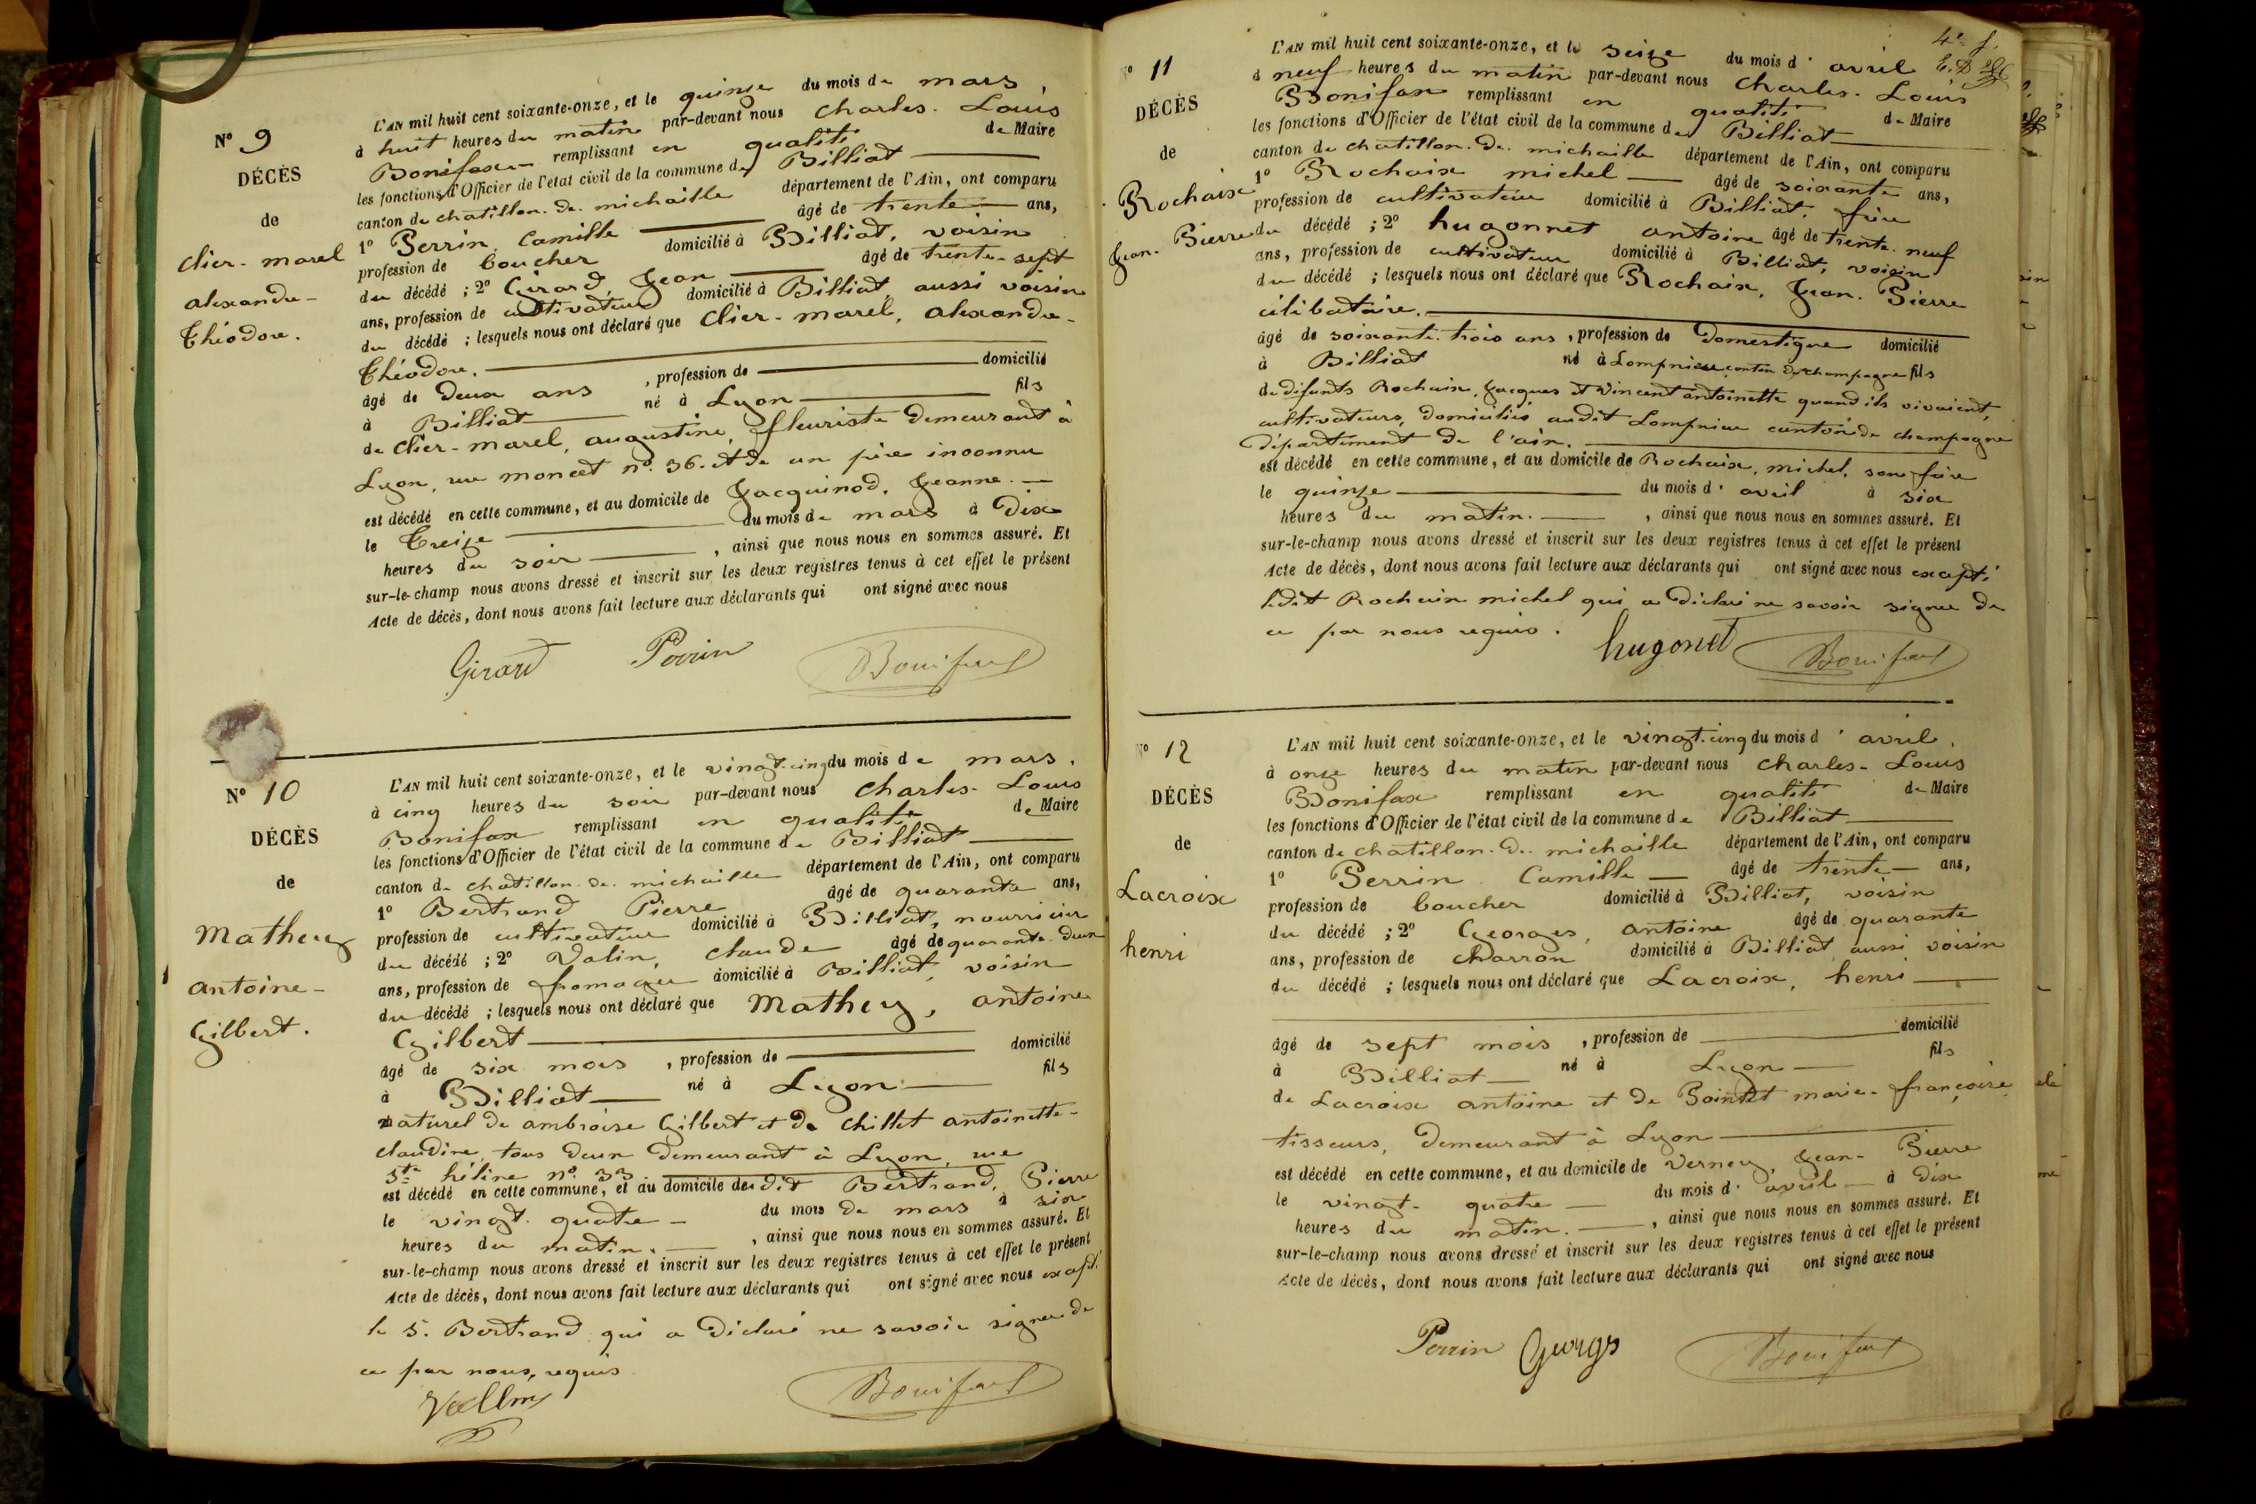 Nº 9
DÉCÈS
de
Clier-marel
alexandre-
Théodore.
L'AN mil huit cent soixante-onze, et le quinze du mois de mars
à huit heures du matin par-devant nous Charles-Louis
Bonifax remplissant en qualité de Maire
les fonctions d'Officier de l'état civil de la commune de Billiat
canton de chatillon-de-michaille département de l'Ain, ont comparu
1º Perrin, Camille âgé de trente ans,
profession de boucher domicilié à Billiat, voisin
du décédé ; 2º Girard, Jean âgé de trente-sept
ans, profession de cultivateur domicilié à Billiat, aussi voisin
du décédé ; lesquels nous ont déclaré que Clier-marel, alexandre-
Théodore.
âgé de deux ans , profession de domicilié
à Billiat né à Lyon fils
de Clier-marel, augustine, fleuriste demeurant à
Lyon, rue moncet nº 36. et de un père inconnu
est décédé en cette commune, et au domicile de Jacquinod, Jeanne.
le Treize du mois de mars à dix
heures du soir , ainsi que nous nous en sommes assuré. Et
sur-le-champ nous avons dressé et inscrit sur les deux registres tenus à cet effet le présent
Acte de décès, dont nous avons fait lecture aux déclarants qui ont signé avec nous
Girard Perrin Bonifax
Nº 10
DÉCÈS
de
Mathey
antoine-
Gilbert.
L'AN mil huit cent soixante-onze, et le vingt-cinq du mois de mars,
à cinq heures du soir par-devant nous Charles-Louis
Bonifax remplissant en qualité de Maire
les fonctions d'Officier de l'état civil de la commune de Billiat
canton de chatillon-de-michaille département de l'Ain, ont comparu
1º Bertrand Pierre âgé de quarante ans,
profession de cultivateur domicilié à Billiat, nourricier
du décédé ; 2º Valin, claude âgé de quarante-deux
ans, profession de fromager domicilié à Billiat, voisin
du décédé ; lesquels nous ont déclaré que Mathey, antoine
Gilbert
âgé de six mois , profession de domicilié
à Billiat né à Lyon fils
naturel de ambroise Gilbert et de Chillet antoinette-
claudine, tous deux demeurant à Lyon, rue
Ste hélène nº 33
est décédé en cette commune, et au domicile dudit Bertrand, Pierre
le vingt-quatre du mois de mars à six
heures du matin. , ainsi que nous nous en sommes assuré. Et
sur-le-champ nous avons dressé et inscrit sur les deux registres tenus à cet effet le présent
Acte de décès, dont nous avons fait lecture aux déclarants qui ont signé avec nous excepté
le s. Bertrand qui a déclaré ne savoir signer de
ce par nous, requis
Bonifax
4e f.
Nº 11
DÉCÈS
de
Rochaix
Jean-Pierre
L'AN mil huit cent soixante-onze, et le seize du mois d'avril
à neuf heures du matin par-devant nous Charles-Louis
Bonifax remplissant en qualité de Maire
les fonctions d'Officier de l'état civil de la commune de Billiat
canton de chatillon-de-michaille département de l'Ain, ont comparu
1º Rochaix michel âgé de soixante ans,
profession de cultivateur domicilié à Billiat, frère
du décédé ; 2º hugonnet antoine âgé de trente-neuf
ans, profession de cultivateur domicilié à Billiat, voisin
du décédé ; lesquels nous ont déclaré que Rochaix, Jean-Pierre
célibataire.
âgé de soixante-trois ans , profession de domestique domicilié
à Billiat né à Lompnieu canton de champagne fils
de défunts Rochaix, Jacques et Vincent antoinette quand ils vivaient,
cultivateurs, domiciliés audit Lompnieu canton de champagne
département de l'ain.
est décédé en cette commune, et au domicile de Rochaix, michel, son frère
le quinze du mois d'avril à six
heures du matin. , ainsi que nous nous en sommes assuré. Et
sur-le-champ nous avons dressé et inscrit sur les deux registres tenus à cet effet le présent
Acte de décès, dont nous avons fait lecture aux déclarants qui ont signé avec nous excepté
ledit Rochaix michel qui a déclaré ne savoir signer de
ce par nous requis.
hugonet Bonifax
Nº 12
DÉCÈS
de
Lacroix
henri
L'AN mil huit cent soixante-onze, et le vingt-cinq du mois d'avril,
à onze heures du matin par-devant nous Charles-Louis
Bonifax remplissant en qualité de Maire
les fonctions d'Officier de l'état civil de la commune de Billiat
canton de chatillon-de-michaille département de l'Ain, ont comparu
1º Perrin Camille âgé de trente ans,
profession de boucher domicilié à Billiat, voisin
du décédé ; 2º Georges, antoine âgé de quarante
ans, profession de charron domicilié à Billiat aussi voisin
du décédé ; lesquels nous ont déclaré que Lacroix, henri
âgé de sept mois , profession de domicilié
à Billiat né à Lyon fils
de Lacroix antoine et de Pointet marie-françoise,
tisseurs, demeurant à Lyon
est décédé en cette commune, et au domicile de Verney, Jean-Pierre
le vingt-quatre du mois d'avril à dix
heures du matin. , ainsi que nous nous en sommes assuré. Et
sur-le-champ nous avons dressé et inscrit sur les deux registres tenus à cet effet le présent
Acte de décès, dont nous avons fait lecture aux déclarants qui ont signé avec nous
Perrin Georgs Bonifax